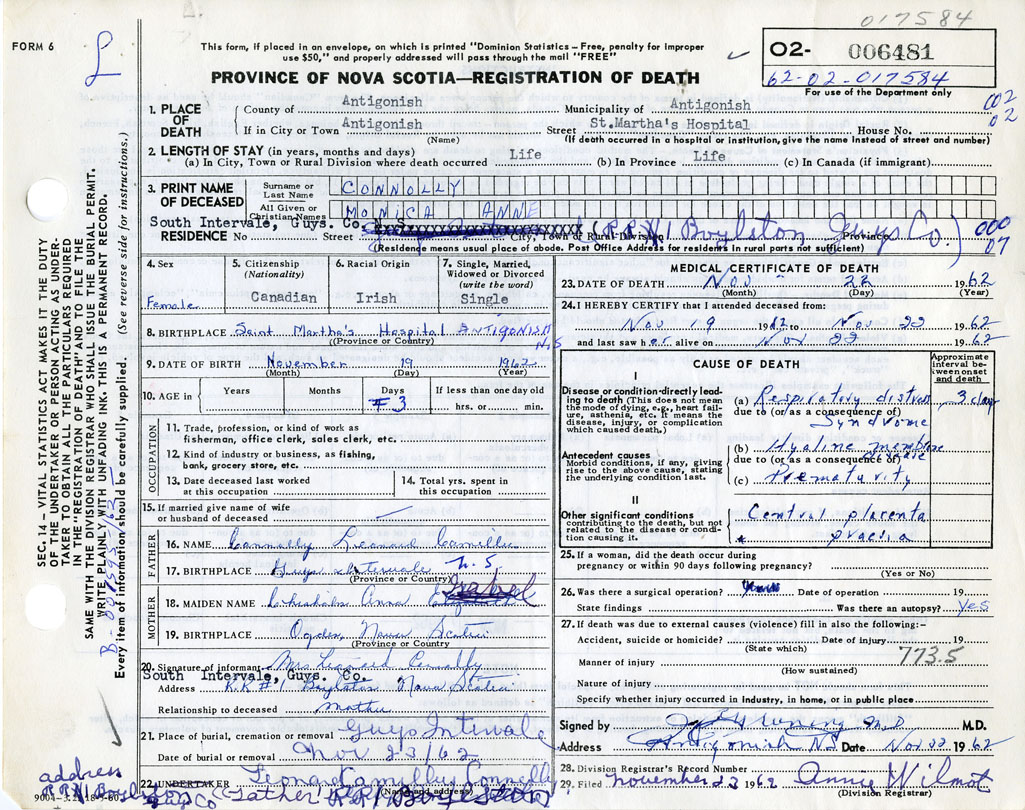 017584
FORM 6
This form, if placed in an envelope, on which is printed "Dominion Statistics – Free, penalty for improper
use $50," and properly addressed will pass through the mail "FREE"
PROVINCE OF NOVA SCOTIA—REGISTRATION OF DEATH
02- 006481
62-02-017584
For use of the Department only
002
02
1. PLACE OF DEATH
County of Antigonish Municipality of Antigonish
If in City or Town Antigonish Street St.Martha's Hospital House No.
(Name) (If death occurred in a hospital or institution, give name instead of street and number)
2. LENGTH OF STAY (in years, months and days)
(a) In City, Town or Rural Division where death occurred Life (b) In Province Life (c) In Canada (if immigrant)
3. PRINT NAME OF DECEASED
Surname or Last Name CONNOLLY
All Given or Christian Names MONICA ANNE
South Intervale, Guys. Co. N. S.
RESIDENCE No Street City, Town or Rural Division (R.R.#1 Boylston Guys Co.) Province
000
07
(Residence means usual place of abode. Post Office Address for residents in rural parts not sufficient)
4. Sex Female
5. Citizenship (Nationality) Canadian
6. Racial Origin Irish
7. Single, Married, Widowed or Divorced (write the word) Single
8. BIRTHPLACE Saint Martha's Hospital ANTIGONISH N.S
(Province or Country)
9. DATE OF BIRTH November 19 1962
(Month) (Day) (Year)
10. AGE in Years Months Days 3 If less than one day old
hrs. or min.
OCCUPATION
11. Trade, profession, or kind of work as
fisherman, office clerk, sales clerk, etc.
12. Kind of industry or business, as fishing,
bank, grocery store, etc.
13. Date deceased last worked
at this occupation
14. Total yrs. spent in
this occupation
15. If married give name of wife
or husband of deceased
FATHER
16. NAME Connolly Leonard Camillus
17. BIRTHPLACE Guys Intervale N.S.
(Province or Country)
MOTHER
18. MAIDEN NAME Anna Isabel
19. BIRTHPLACE Ogden, Nova Scotia
(Province or Country
20. Signature of informant Mrs Leonard Connolly
South Intervale, Guys. Co.
Address R.R #1 Boylston Nova Scotia
Relationship to deceased mother
21. Place of burial, cremation or removal Guys Intervale
Date of burial or removal Nov 23/62
22. UNDERTAKER Leonard Camillus Connolly
(Father) R.R#1 Boylston
(Name and address)
address
R.R#1 Boylston
Guys Co
MEDICAL CERTIFICATE OF DEATH
23. DATE OF DEATH Nov 22 1962
(Month) (Day) (Year)
24. I HEREBY CERTIFY that I attended deceased from:
Nov 19 1962 to Nov 22 1962
and last saw her alive on Nov 22 1962
CAUSE OF DEATH
Approximate interval between onset and death
I
Disease or condition-directly leading to death (This does not mean the mode of dying, e.g., heart failure, asthenia, etc. It means the disease, injury, or complication which caused death.)
(a) Respiratory distress Syndrome 3 days
due to (or as a consequence of)
Antecedent causes
Morbid conditions, if any, giving rise to the above cause, stating the underlying condition last.
(b) Hyaline membrane disease
due to (or as a consequence of)
(c) Prematurity
II
Other significant conditions
contributing to the death, but not related to the disease or condition causing it.
Central placenta praevia
25. If a woman, did the death occur during
pregnancy or within 90 days following pregnancy?
(Yes or No)
26. Was there a surgical operation? Date of operation 19
State findings Was there an autopsy? Yes
27. If death was due to external causes (violence) fill in also the following:–
Accident, suicide or homicide? Date of injury 19
(State which)
773.5
Manner of injury
(How sustained)
Nature of injury
Specify whether injury occurred in industry, in home, or in public place
Signed by M.D. M.D.
Address Antigonish N.S Date Nov 22 1962
28. Division Registrar's Record Number
29. Filed November 23 1962 Annie Wilmot
(Division Registrar)
SEC. 14 – VITAL STATISTICS ACT MAKES IT THE DUTY
OF THE UNDERTAKER OR PERSON ACTING AS UNDER-
TAKER TO OBTAIN ALL THE PARTICULARS REQUIRED
IN THE "REGISTRATION OF DEATH" AND TO FILE THE
SAME WITH THE DIVISION REGISTRAR WHO SHALL ISSUE THE BURIAL PERMIT.
WRITE PLAINLY WITH UNFADING INK. THIS IS A PERMANENT RECORD.
Every item of information should be carefully supplied. (See reverse side for instructions.)